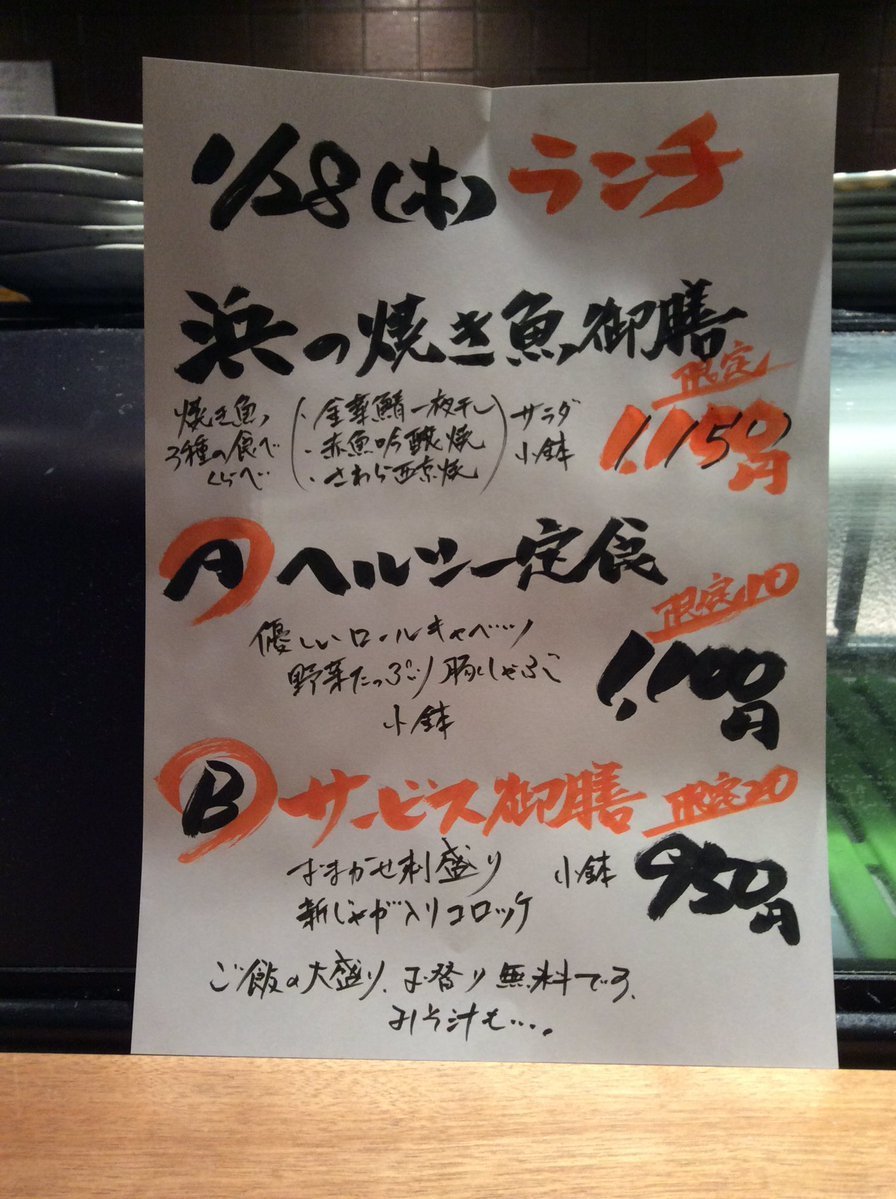 1/28(木)ランチ
浜の焼き魚御膳
限定
焼き魚
3種の食べ
くらべ
・金華鯖一枚干し
・赤魚吟醸焼
・さわら西京焼
サラダ
小鉢
1,150円
A ヘルシー定食
限定10
優しいロールキャベツ
野菜たっぷり豚しゃぶ
小鉢
1,100円
B サービス御膳
限定20
おまかせ刺盛り 小鉢
新じゃが入りコロッケ
950円
ご飯の大盛り、お替り無料です、
みそ汁も…。